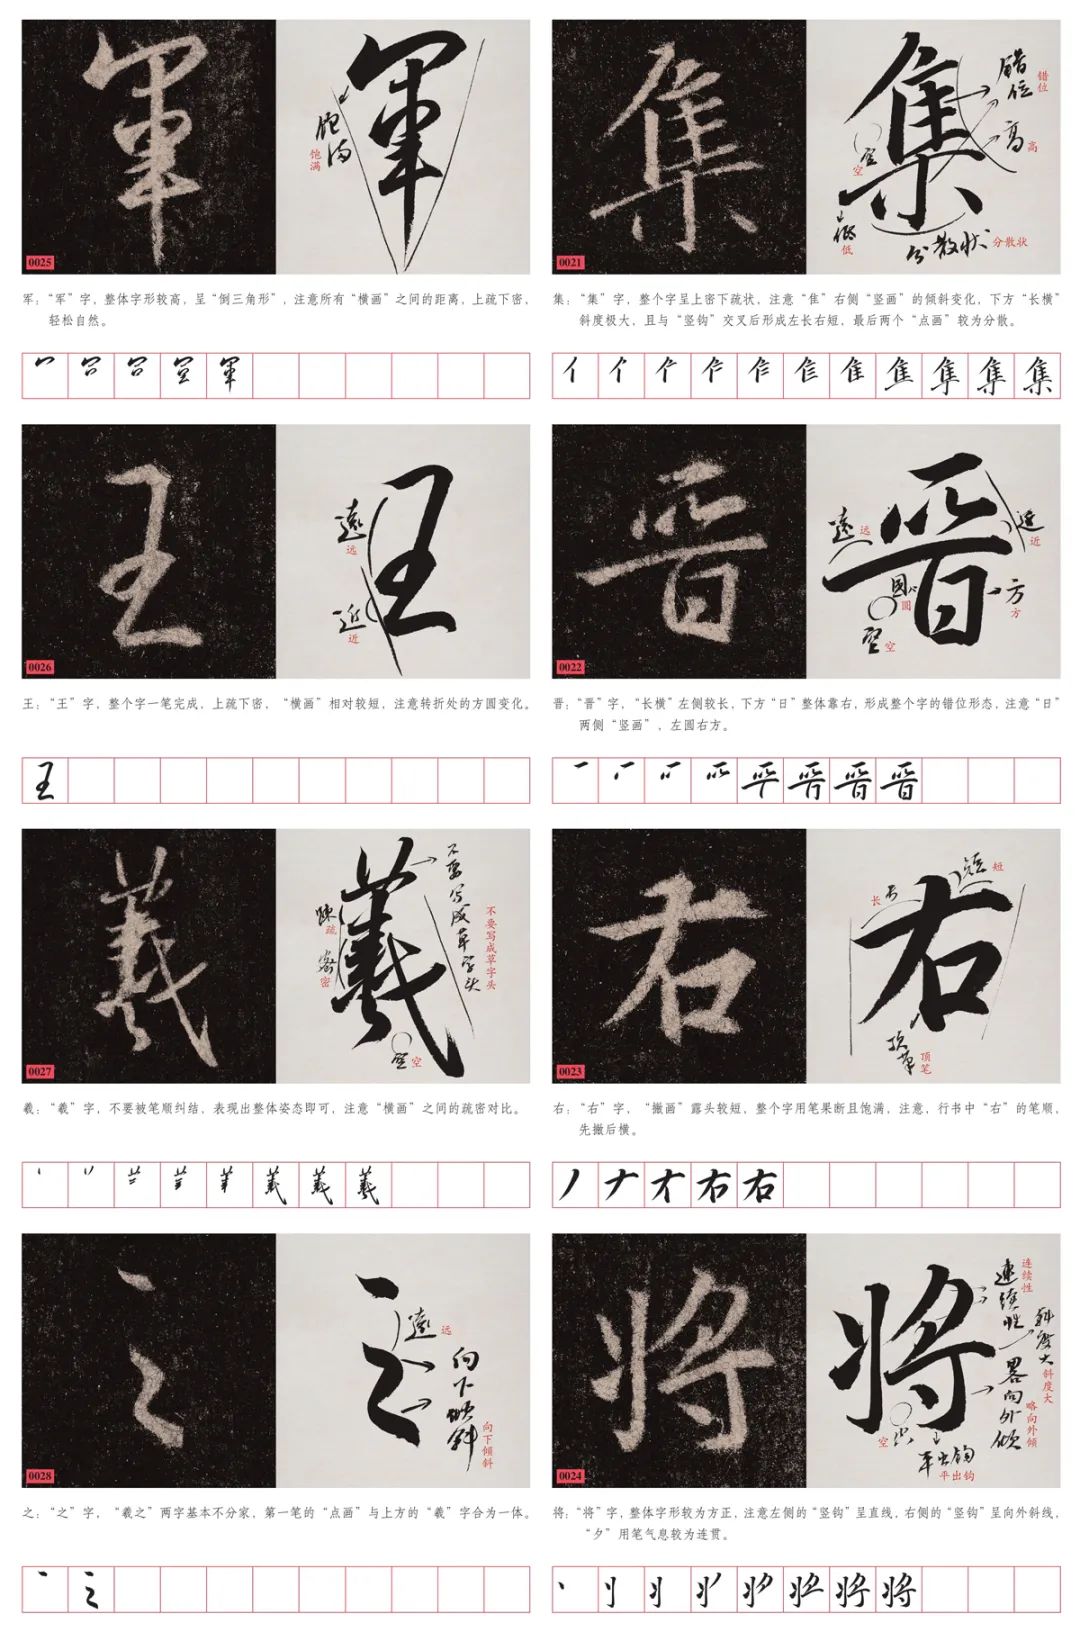 軍
軍
饱满
饱满
0025
军：“军”字，整体字形较高，呈“倒三角形”，注意所有“横画”之间的距离，上疏下密，
轻松自然。
集
集
错位
错位
高
高
空
空
低
低
分散状
分散状
0021
集：“集”字，整个字呈上密下疏状，注意“隹”右侧“竖画”的倾斜变化，下方“长横”
斜度极大，且与“竖钩”交叉后形成左长右短，最后两个“点画”较为分散。
軍
集
王
王
遠
远
近
近
0026
王：“王”字，整个字一笔完成，上疏下密，“横画”相对较短，注意转折处的方圆变化。
晋
晋
遠
远
近
近
圆
圆
方
方
空
空
0022
晋：“晋”字，“长横”左侧较长，下方“日”整体靠右，形成整个字的错位形态，注意“日”
两侧“竖画”，左圆右方。
王
晋
羲
羲
不要写成草字头
不要写成草字头
疏
疏
密
密
空
空
0027
羲：“羲”字，不要被笔顺纠结，表现出整体姿态即可，注意“横画”之间的疏密对比。
右
右
长
长
短
短
顶笔
顶笔
0023
右：“右”字，“撇画”露头较短，整个字用笔果断且饱满，注意，行书中“右”的笔顺，
先撇后横。
羲
右
之
之
遠
远
向下倾斜
向下倾斜
0028
之：“之”字，“羲之”两字基本不分家，第一笔的“点画”与上方的“羲”字合为一体。
将
将
连续性
连续性
斜度大
斜度大
略向外倾
略向外倾
空
空
平出钩
平出钩
0024
将：“将”字，整体字形较为方正，注意左侧的“竖钩”呈直线，右侧的“竖钩”呈向外斜线，
“夕”用笔气息较为连贯。
之
将